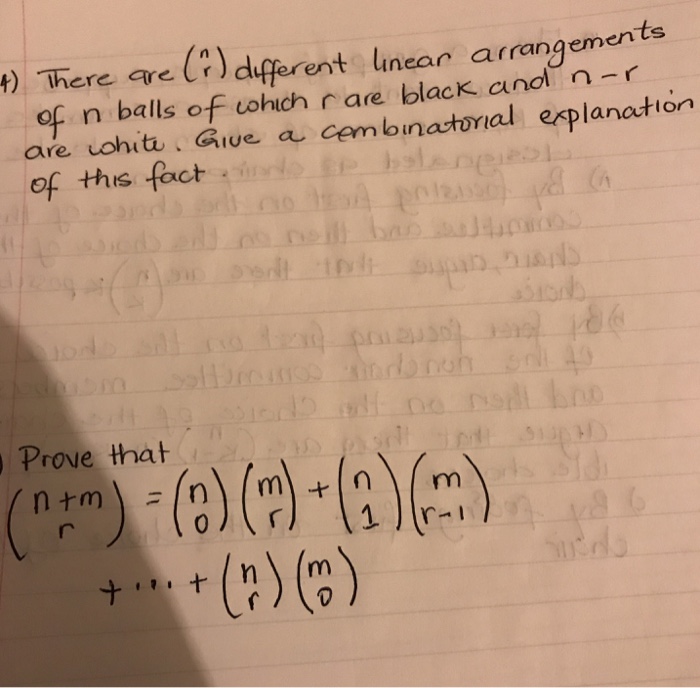 4) There are (n r) different linear arrangements
of n balls of which r are black and n-r
are white. Give a combinatorial explanation
of this fact.
Prove that
(n+m r) = (n 0) (m r) + (n 1) (m r-1)
+ .... + (n r) (m 0)